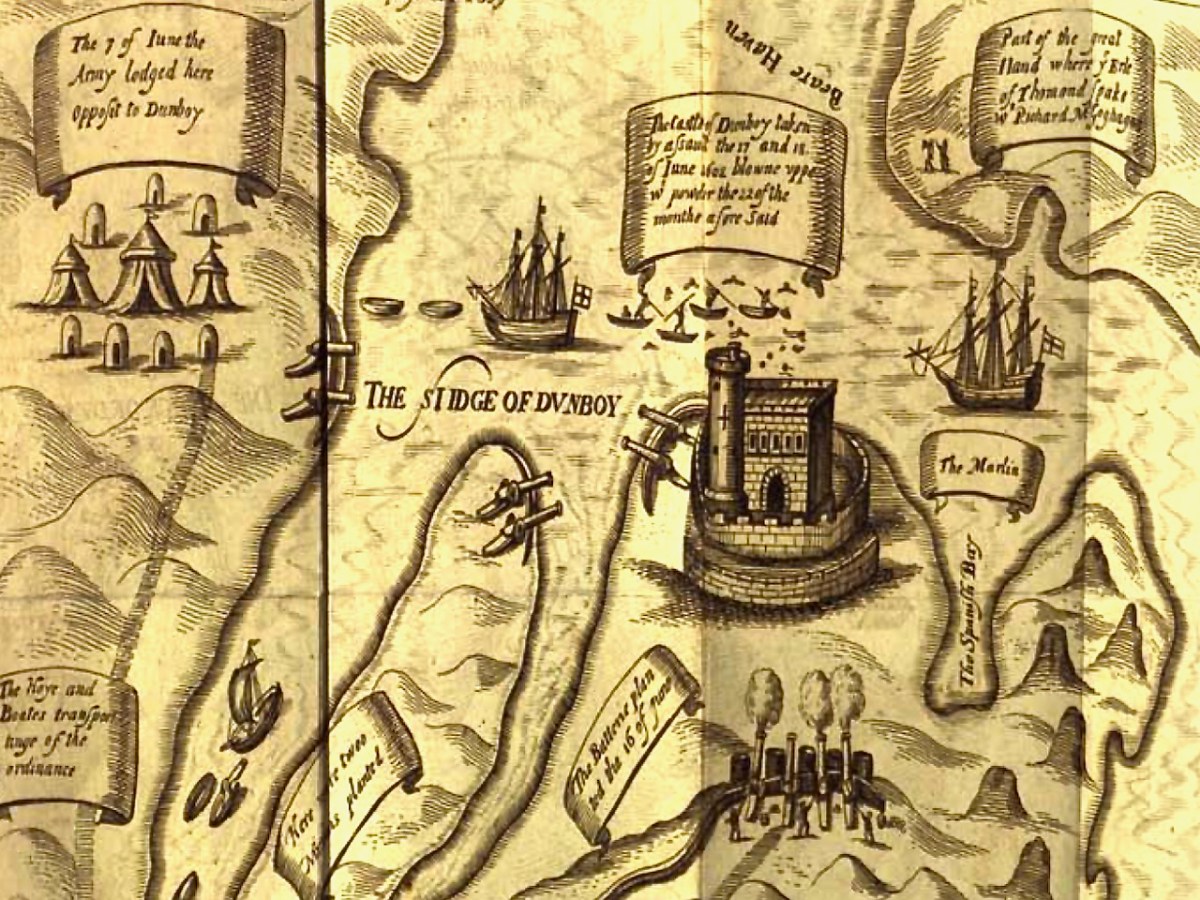 The 7 of Iune the
Army lodged here
opposit to Dunboy
Beare Haven
Part of the great
Iland where ye Erle
of Thomond spake
wt Richard
The Castle of Dunboy taken
by assaut the 17 and 18
of Iune 1602 blowne vppe
wt powder the 22 of the
monthe afore Said
THE SIIDGE OF DVNBOY
The Marlin
The Spanish Bay
The Hoye and
Boates transpor
tinge of the
ordinance
Here two
planted
The Batterie plan
ted the 16 of Iune